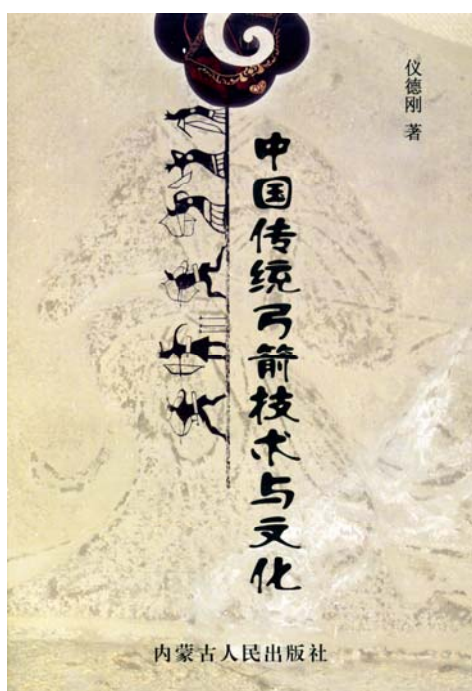 仪德刚 著
中国传统弓箭技术与文化
内蒙古人民出版社